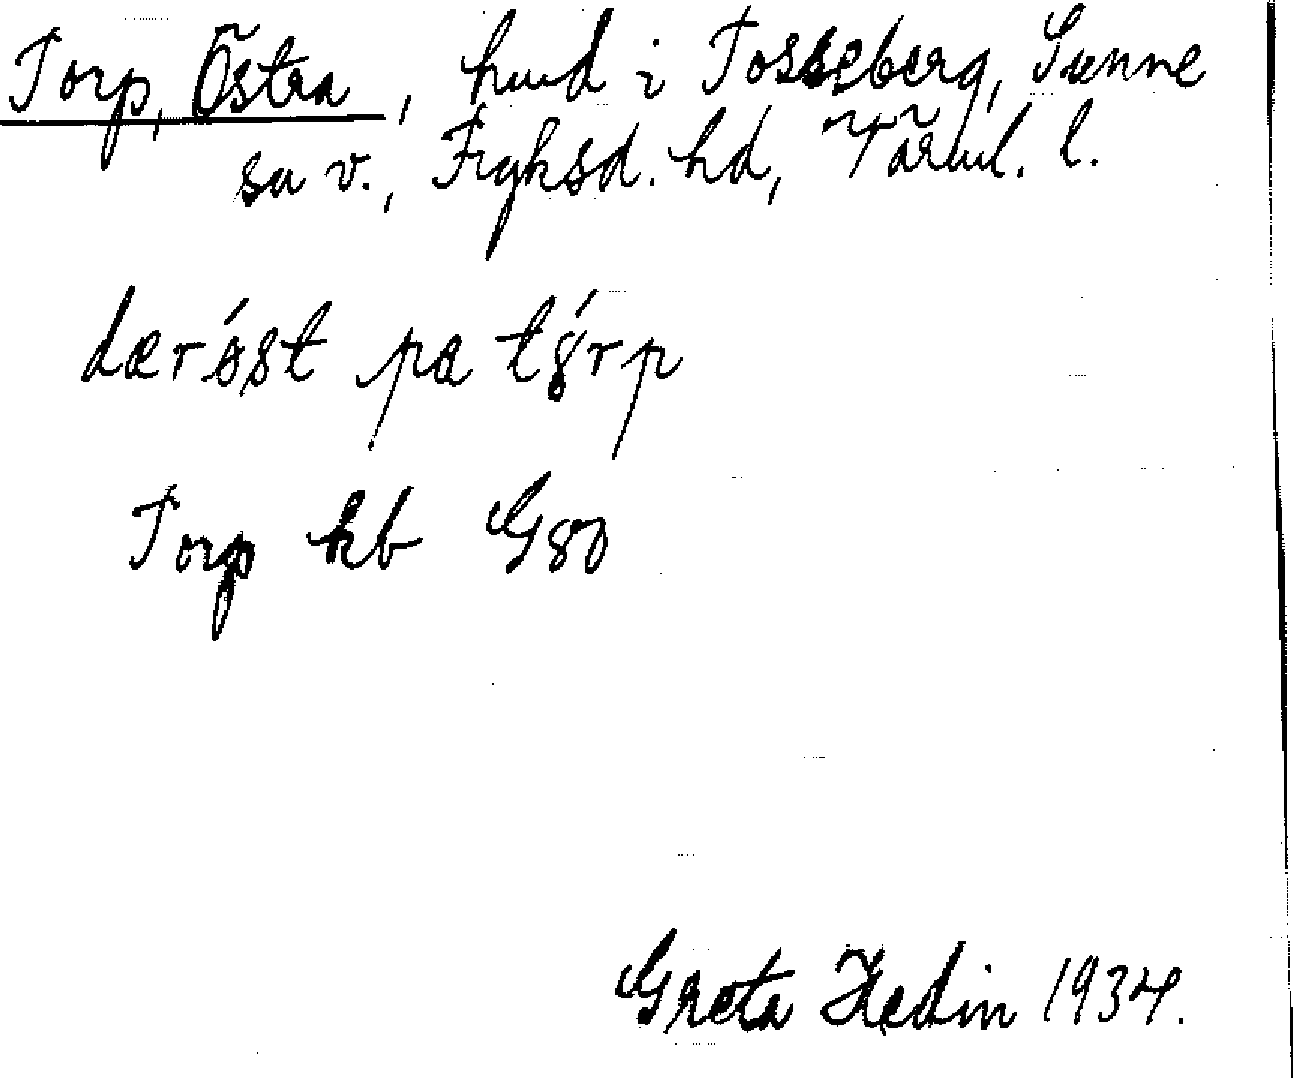 Torp, Östra, hmd i Tosseberg, Sunne
sn v., Fryksd. hd, Värml. l.
dærǿst pa tǿrp
Torp kb G80
Greta Hedin 1934.